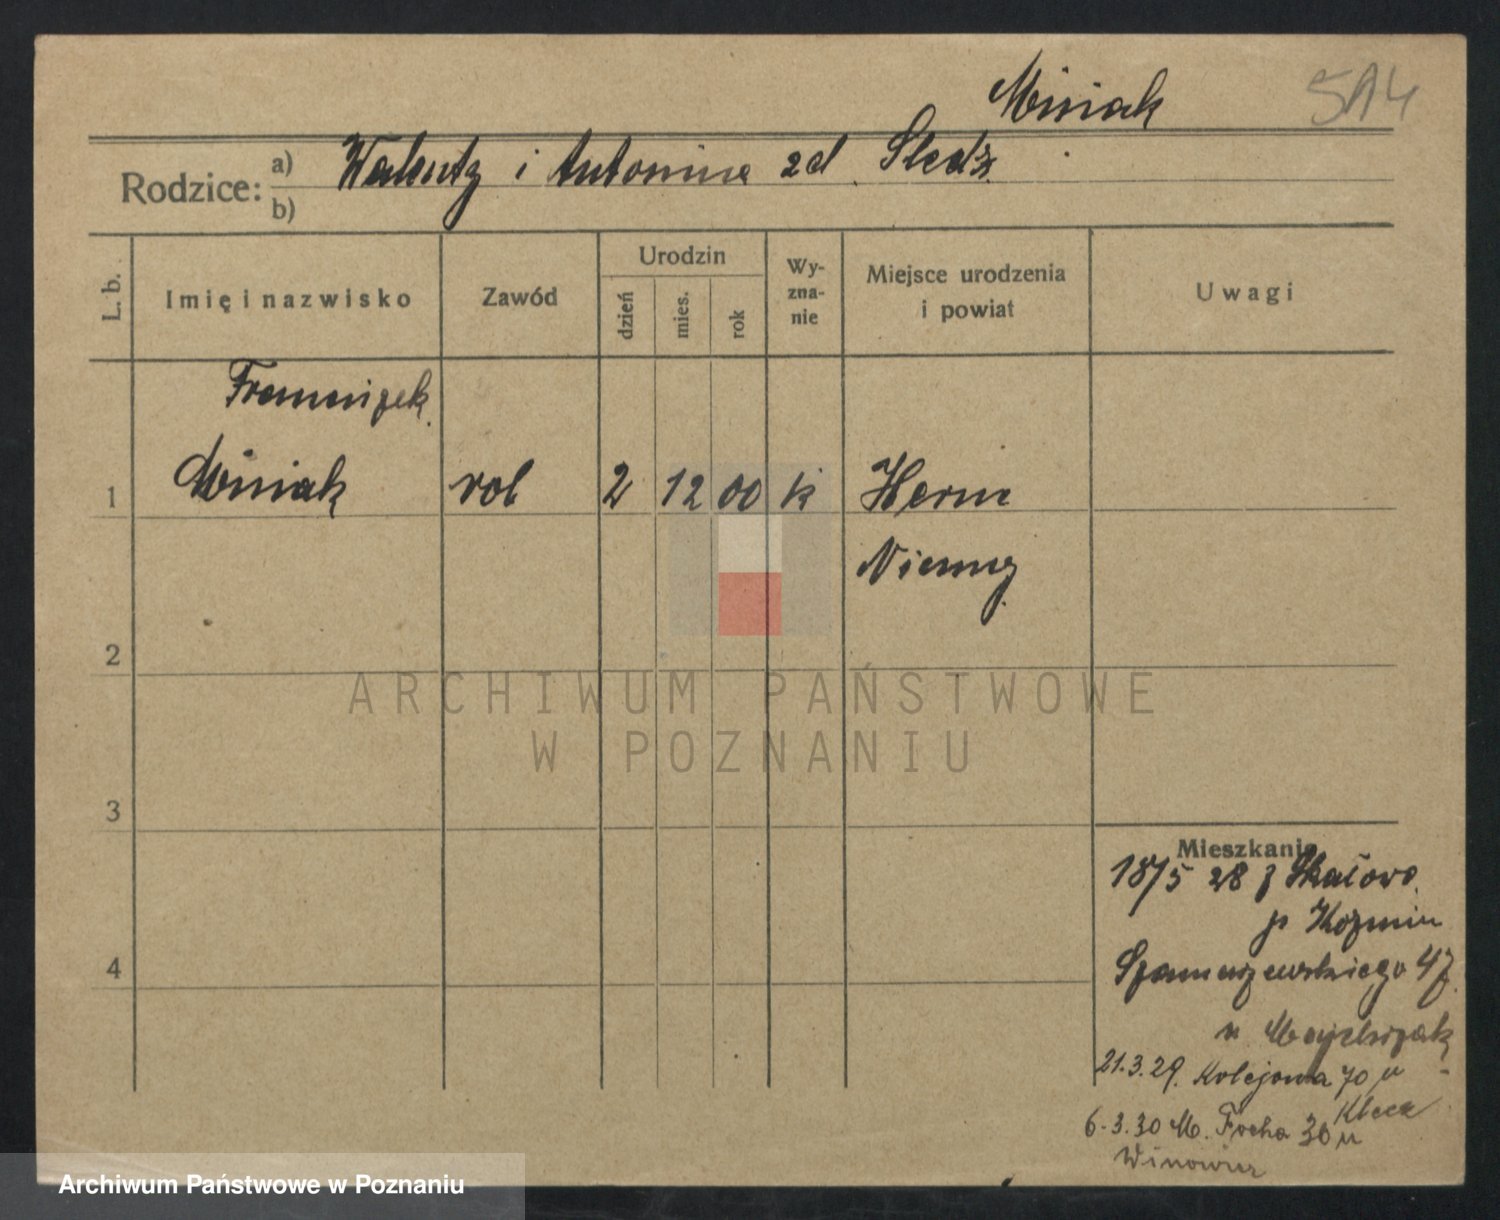 Misiak
514
Rodzice: a) Walenty i Antonina zd. Śledź
b)
L. b.
Imię i nazwisko
Zawód
Urodzin
dzień
mies.
rok
Wy-
zna-
nie
Miejsce urodzenia
i powiat
Uwagi
Franciszek
1 Misiak rob 2 12 00 k Herne
Niemcy
2
3
4
Mieszkanie
18/5 28 z
p Koźmin
Szamarzewskiego 47
u
21.3.29. Kolejowa 70 u
6.3.30 M. Focha 30 u
ARCHIWUM PAŃSTWOWE
W POZNANIU
Archiwum Państwowe w Poznaniu